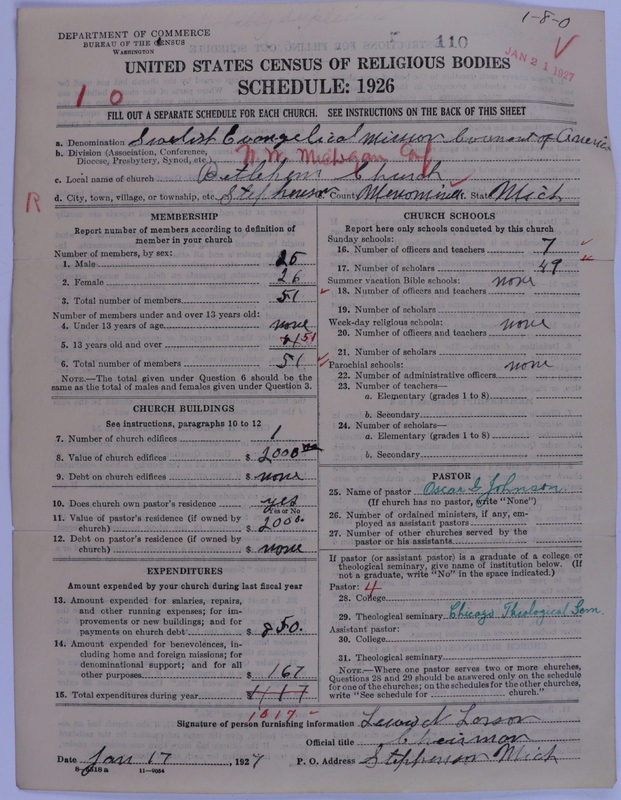 1-8-0
DEPARTMENT OF COMMERCE
BUREAU OF THE CENSUS
WASHINGTON
110
JAN 21 1927
UNITED STATES CENSUS OF RELIGIOUS BODIES
SCHEDULE: 1926
1 0
FILL OUT A SEPARATE SCHEDULE FOR EACH CHURCH. SEE INSTRUCTIONS ON THE BACK OF THIS SHEET
a. Denomination Swedish Evangelical Mission Covenant of America
b. Division (Association, Conference, Diocese, Presbytery, Synod, etc.) N.W. Michigan Conf
c. Local name of church Bethlehem Church
R
d. City, town, village, or township, etc. Stephenson County Menominee State Mich
MEMBERSHIP
Report number of members according to definition of
member in your church
Number of members, by sex:
1. Male 25
2. Female 26
3. Total number of members 51
Number of members under and over 13 years old:
4. Under 13 years of age none
5. 13 years old and over 51
6. Total number of members 51
NOTE.—The total given under Question 6 should be the
same as the total of males and females given under Question 3.
CHURCH BUILDINGS
See instructions, paragraphs 10 to 12
7. Number of church edifices 1
8. Value of church edifices $ 2000
9. Debt on church edifices $ none
10. Does church own pastor's residence yes
Yes or No
11. Value of pastor's residence (if owned by
church) $ 2000.
12. Debt on pastor's residence (if owned by
church) $ none
EXPENDITURES
Amount expended by your church during last fiscal year
13. Amount expended for salaries, repairs,
and other running expenses; for im-
provements or new buildings; and for
payments on church debt $ 850.
14. Amount expended for benevolences, in-
cluding home and foreign missions; for
denominational support; and for all
other purposes $ 167
15. Total expenditures during year $ 1117
1017
CHURCH SCHOOLS
Report here only schools conducted by this church
Sunday schools:
16. Number of officers and teachers 7
17. Number of scholars 49
Summer vacation Bible schools: none
18. Number of officers and teachers
19. Number of scholars
Week-day religious schools: none
20. Number of officers and teachers
21. Number of scholars
Parochial schools: none
22. Number of administrative officers
23. Number of teachers—
a. Elementary (grades 1 to 8)
b. Secondary
24. Number of scholars—
a. Elementary (grades 1 to 8)
b. Secondary
PASTOR
25. Name of pastor Oscar G. Johnson
(If church has no pastor, write "None")
26. Number of ordained ministers, if any, em-
ployed as assistant pastors
27. Number of other churches served by the
pastor or his assistants
If pastor (or assistant pastor) is a graduate of a college or
theological seminary, give name of institution below. (If
not a graduate, write "No" in the space indicated.)
Pastor: 4
28. College
29. Theological seminary Chicago Theological Sem.
Assistant pastor:
30. College
31. Theological seminary
NOTE.—Where one pastor serves two or more churches,
Questions 28 and 29 should be answered only on the schedule
for one of the churches; on the schedules for the other churches,
write "See schedule for church."
Signature of person furnishing information
Official title Chairman
Date Jan 17, 1927 P. O. Address Stephenson Mich
8-5518a 11-9054